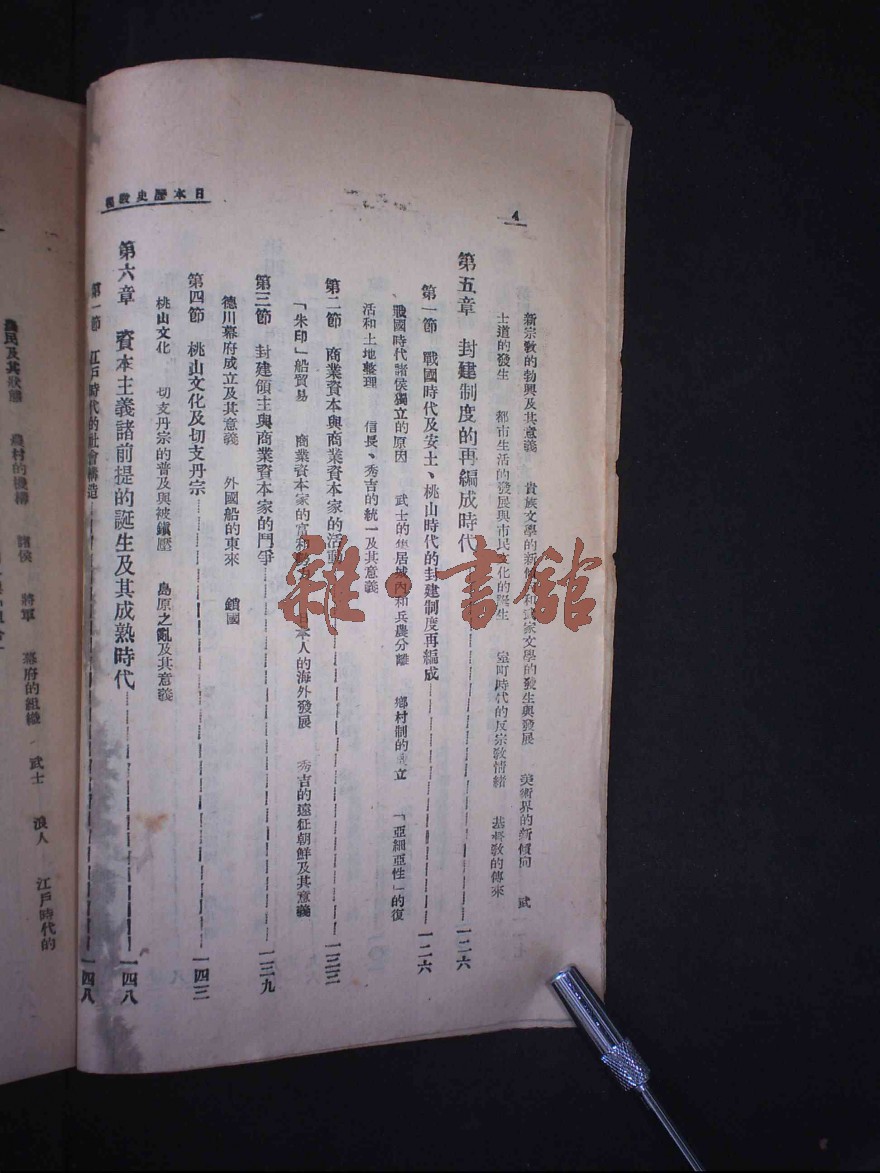 日本歷史教程
4
新宗教的勃興及其意義　貴族文學的新傾和武家文學的發生與發展　美術界的新傾向　武
士道的發生　都市生活的發展與市民文化的發生　室町時代的反宗教情緒　基督教的傳來
第五章　封建制度的再編成時代 一二六
第一節　戰國時代及安土、桃山時代的封建制度再編成 一二六
戰國時代諸侯獨立的原因　武士的集居城內和兵農分離　鄉村制的成立　「亞細亞性」的復
活和土地整理　信長、秀吉的統一及其意義
第二節　商業資本與商業資本家的活動 一三三
「朱印」船貿易　商業資本家的富和　日本人的海外發展　秀吉的遠征朝鮮及其意義
第三節　封建領主與商業資本家的鬥爭 一三九
德川幕府成立及其意義　外國船的東來　鎖國
第四節　桃山文化及切支丹宗 一四三
桃山文化　切支丹宗的普及與被鎮壓　島原之亂及其意義
第六章　資本主義諸前提的誕生及其成熟時代 一四八
第一節　江戶時代的社會構造 一四八
農民及其狀態　農村的機構　諸侯　將軍　幕府的組織　武士　浪人　江戶時代的
雜·書館